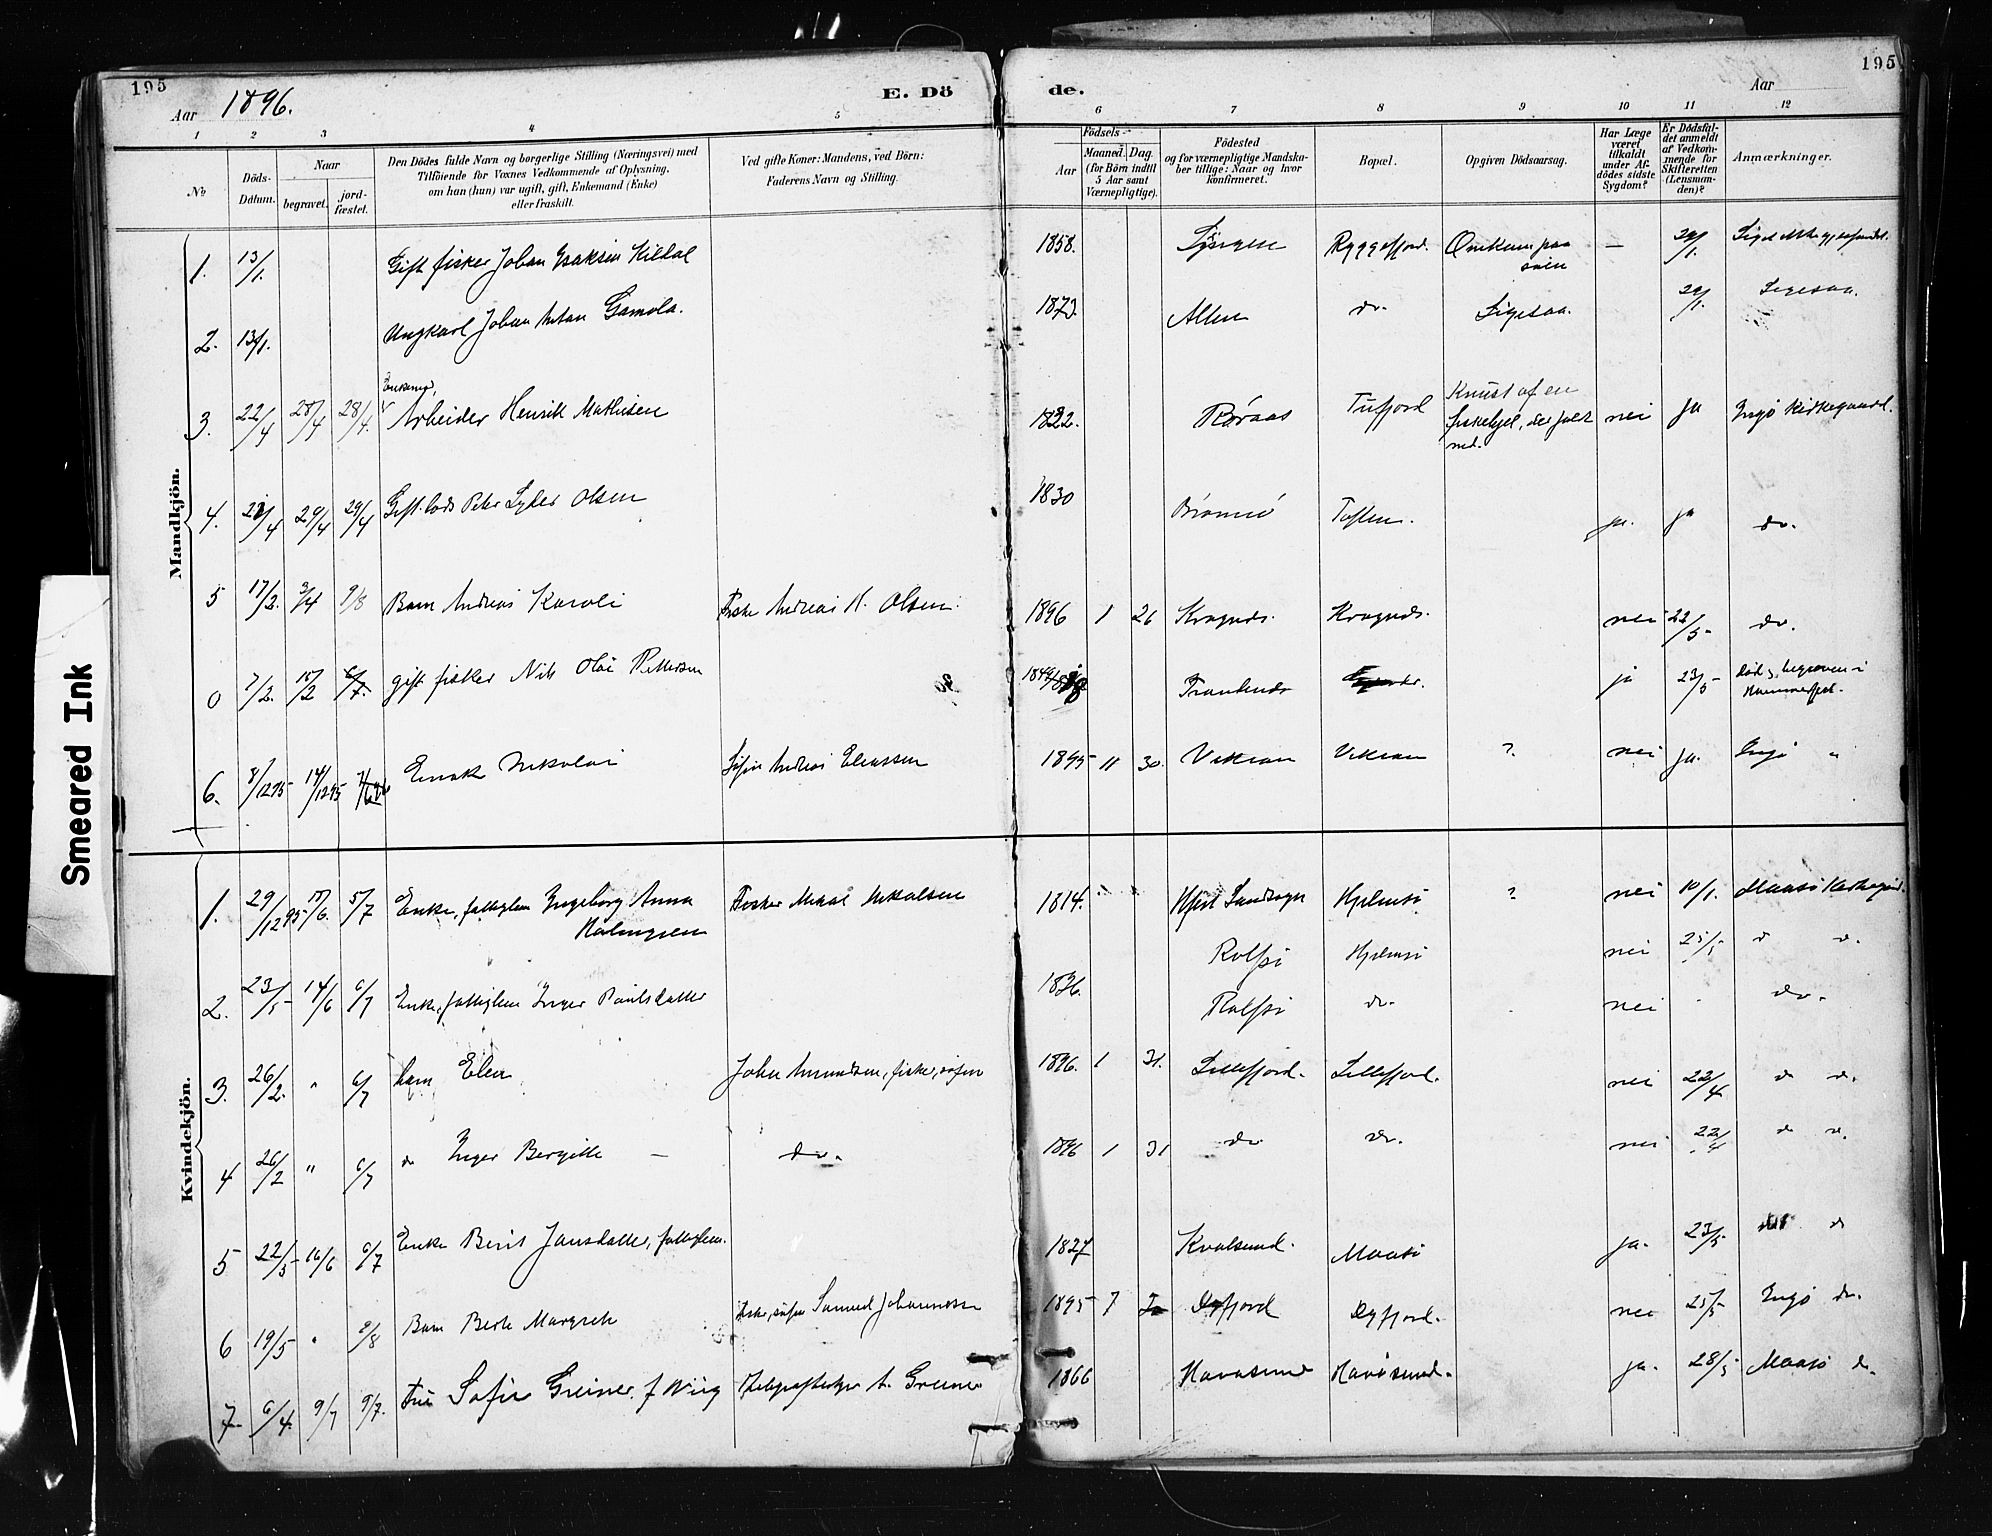 195
Aar 1896.
E. Dö
de.
Aar
195
1 2 3 4 5 6 7 8 9 10 11 12
No
Döds-Datum.
Naar
begravet.
jord-fæstet.
Den Dödes fulde Navn og borgerlige Stilling (Næringsvei) med
Tilföiende for Voxnes Vedkommende af Oplysning,
om han (hun) var ugift, gift, Enkemand (Enke)
eller fraskilt.
Ved gifte Koner: Mandens, ved Börn:
Faderens Navn og Stilling.
Födsels-
Aar
Maaned. Dag.
(for Börn indtil
5 Aar samt
Værnepligtige).
Födested
og for værnepligtige Mandska-
ber tillige: Naar og hvor
konfirmeret.
Bopæl.
Opgiven Dödsaarsag.
Har Læge
været
tilkaldt
under Af-
dödes sidste
Sygdom?
Er Dödsfal-
det anmeldt
af Vedkom-
mende for
Skifteretten
(Lensman-
den)?
Anmærkninger.
Mandkjön.
1. 13/1. Gift fisker Johan Isaksen Kildal 1858. Lyngen Ryggefjord. Omkom paa — 29/1.
søen
2. 13/1. Ungkarl Johan Anton Gamola. 1873. Alten do Ligesaa. 29/1. Ligesaa.
Enkemd,
3. 22/4 28/4 28/4. Arbeider Henrik Mathisen 1822. Røraas Tufjord Knust af en nei ja Ingø Kirkegaard.
fiskehjel, der faldt
ned.
4. 21/4 29/4 29/4 Gift Lods Peter Olsen 1830 Tromsø ja. ja do.
5 17/2. 3/4 9/8 Barn Andreas Karoli Fisker Andreas H. Olsen. 1896 1 26 nei 22/5 do.
0 7/2. 15/2 6/7. gift fisker Nils Olai Pettersen ja 23/5 død & begraven i
Hammerfest.
6. 8/12 95 14/12 95 Enok Nikolai Andreas Eliassen 1895 11 30. Vikran Vikran ? nei ja. Ingø "
Kvindekjön.
1. 29/12 95 /6. 5/7 Enke, fattiglem Ingeborg Anna Fisker Mikal Mikalsen 1814. Hjelmsø ? nei 10/1. Maasø Kirkegaard.
Malmgren
Rolfsø Hjelmsø nei 25/5 d do.
2. 23/5 14/6 6/7 Enke, fattiglem Inger Poulsdatter 1836. Rolfsø do. nei do.
3. 26/2. " 6/7 barn Elen Johan Amundsen, fisker, søfin 1896. 1 31. Lillefjord. Lillefjord. nei 22/4 d d.
4 26/2 " 6/7 do Inger Bergitte — do. 1896 1 31 do do. nei 22/4 d d.
5 22/5 16/6 6/7 Enke Berit Jansdatter, fattiglem. 1827 Kvalsund. Maasø ja. 23/5 do d
6 19/5 " 9/8 Barn Berit Margrete Fisker, søfin Samuel Johannesen 1895 7 Dyfjord Dyfjord. nei 25/5 Ingø do.
7. 6/4. 9/7 9/7. Fru Sofie Greiner, f Wiig A. Greiner 1866 Havøsund Havøsund. ja. 28/5 Maasø d.
Smeared Ink